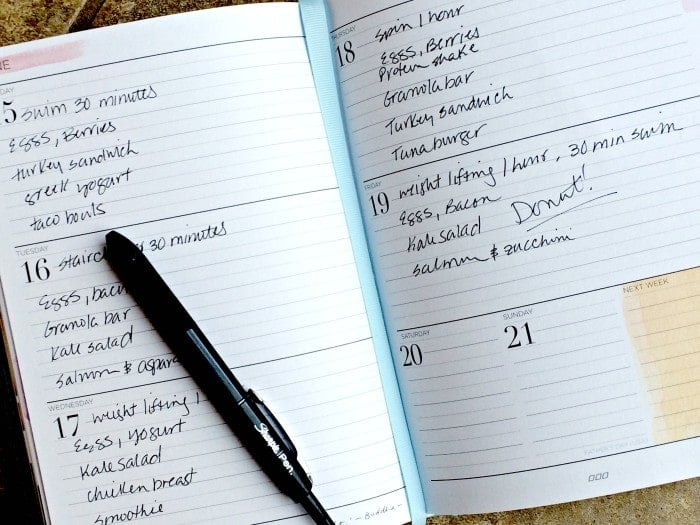 NE
DAY
5 Swim 30 minutes
Eggs, Berries
turkey sandwich
greek yogurt
taco bowls
TUESDAY
16 Stairc 30 minutes
Eggs, baco
Granola bar
Kale salad
Salmon & aspara
WEDNESDAY
17 weight lifting 1
Eggs, yogurt
Kale salad
chicken breast
smoothie
Sharpie Pen.
THURSDAY
18 Spin 1 hour
Eggs, Berries
Protein shake
Granola bar
Turkey sandwich
Tuna burger
FRIDAY
19 weight lifting 1 hour, 30 min swim
Eggs, Bacon
Kale salad
Donut!
Salmon & zucchini
SATURDAY
20
SUNDAY
21
NEXT WEEK